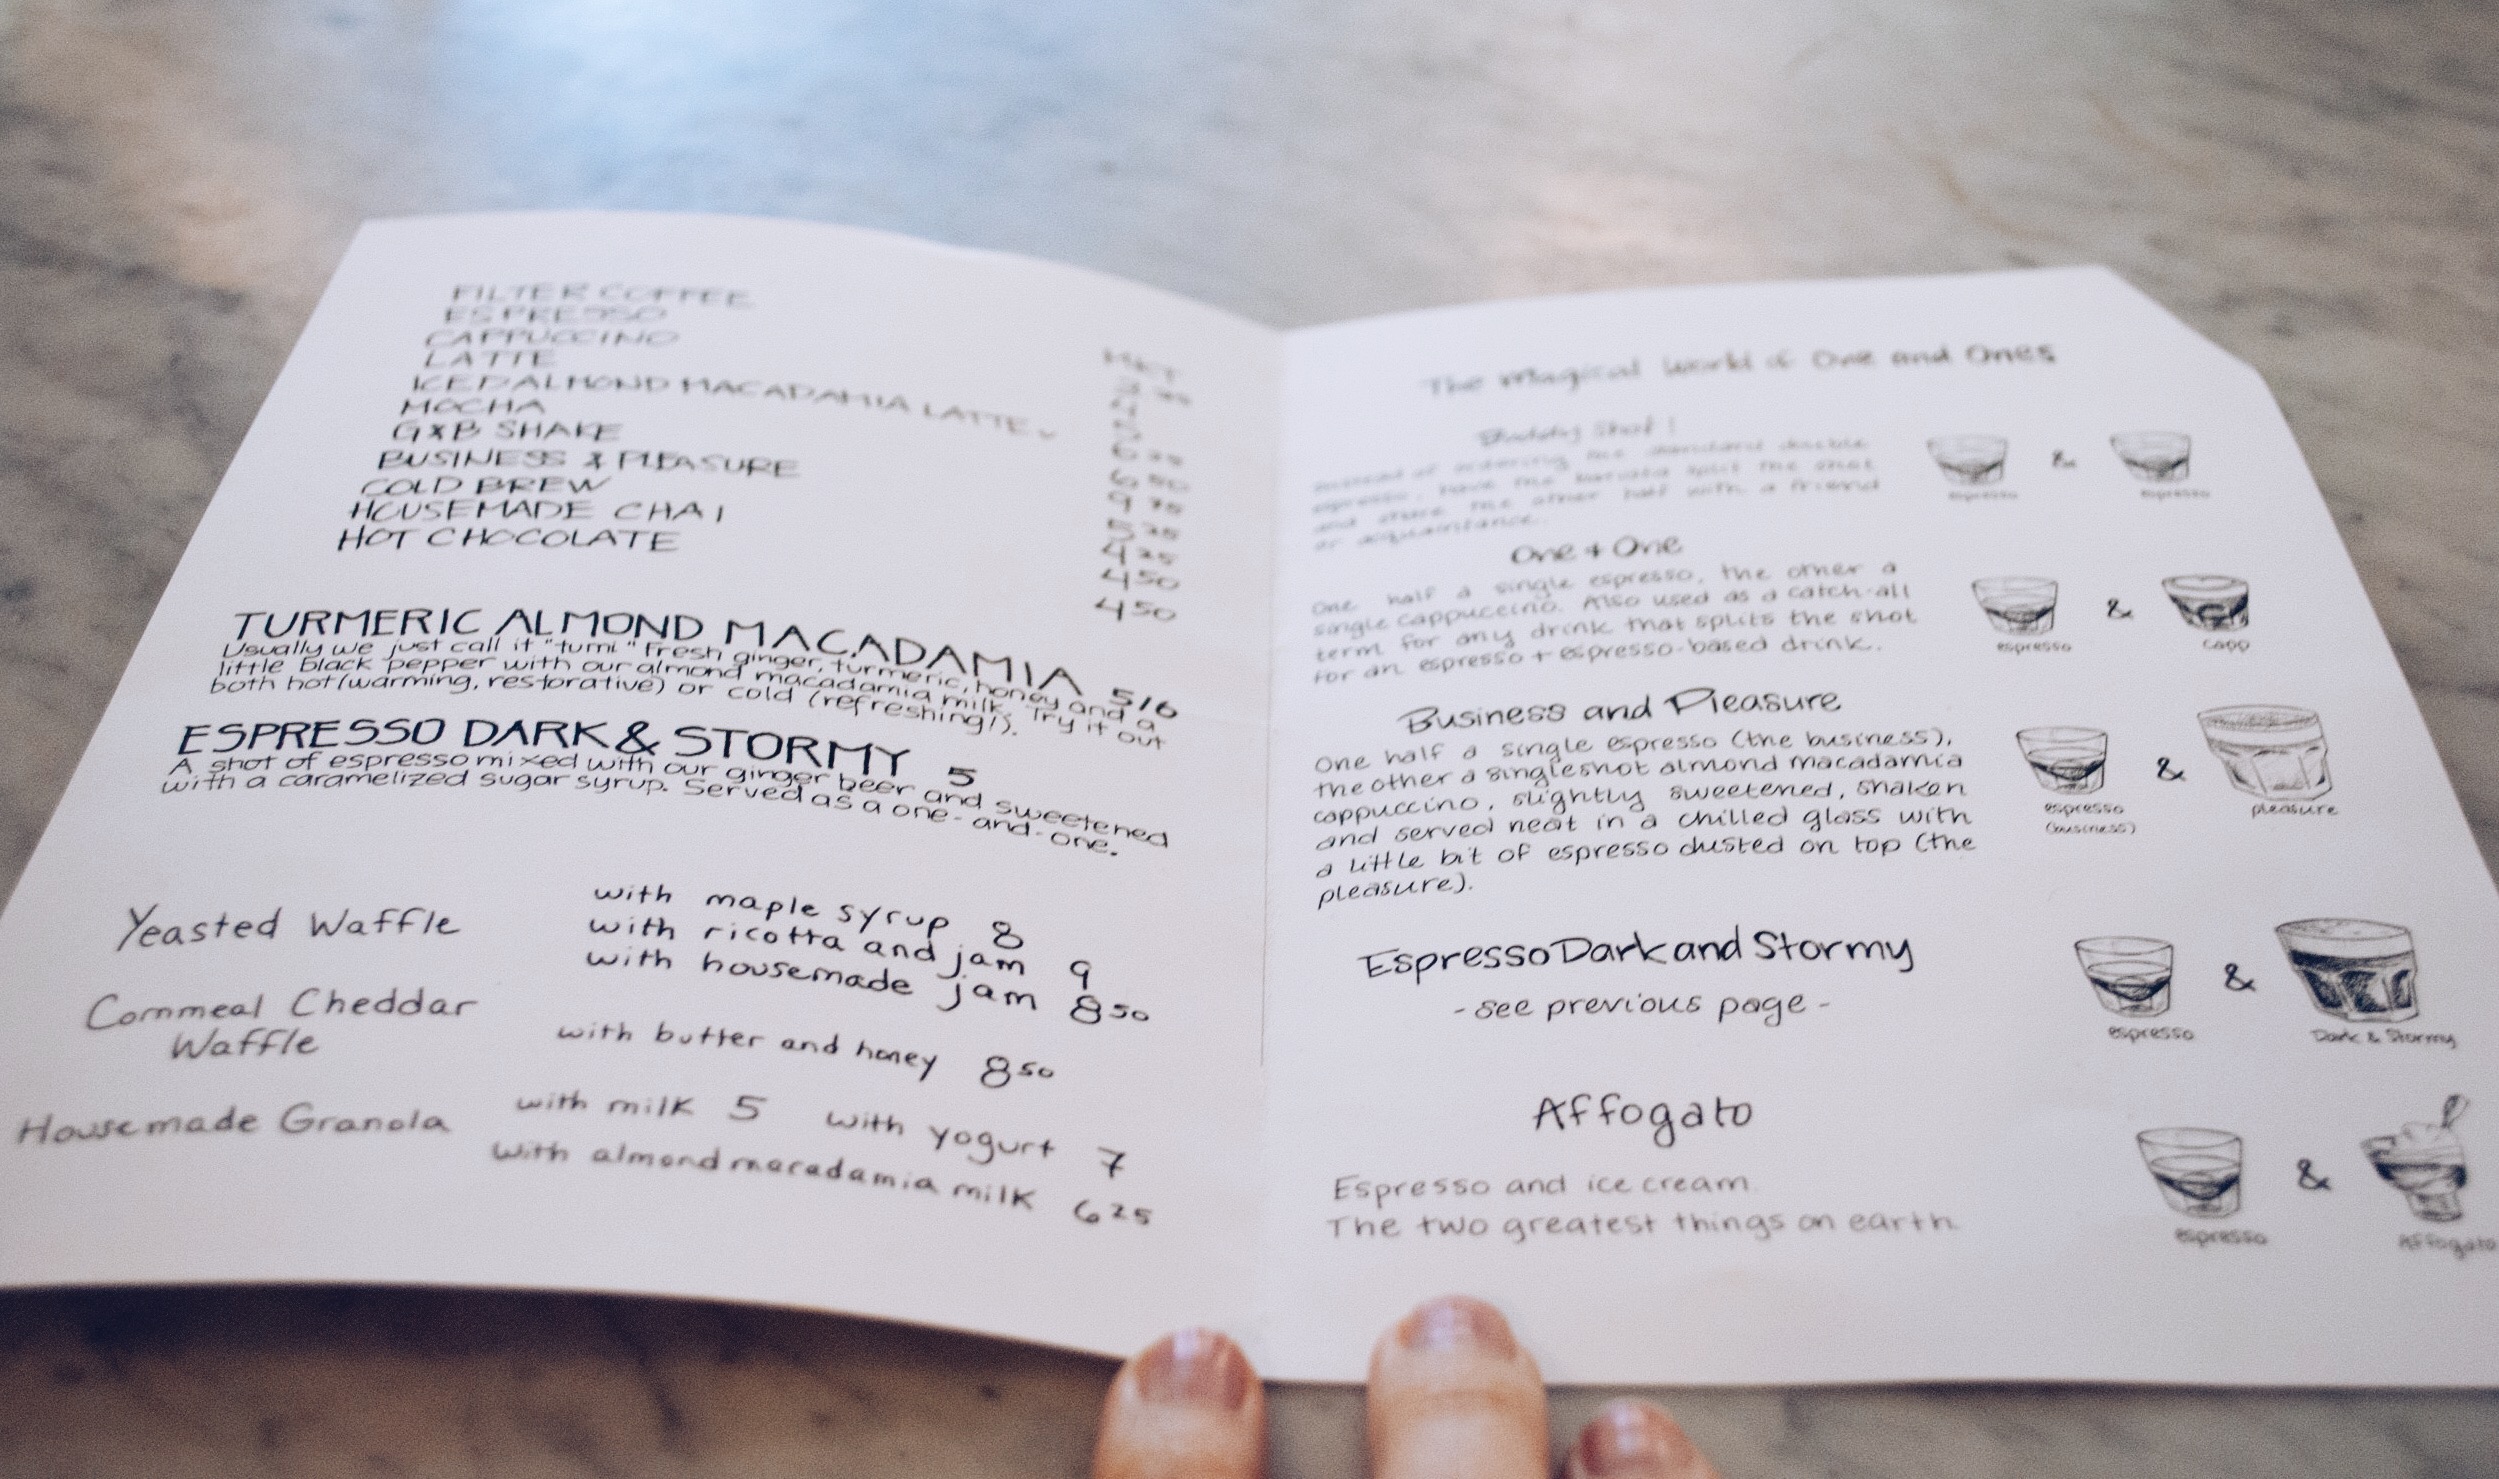 FILTER COFFEE
ESPRESSO
CAPPUCCINO
LATTE
ICED ALMOND MACADAMIA LATTE
MOCHA
G&B SHAKE
BUSINESS & PLEASURE
COLD BREW
HOUSEMADE CHAI
HOT CHOCOLATE
MKT
5
6 50
9 75
5 25
4 25
4 50
4 50
TURMERIC ALMOND MACADAMIA 5/6
Usually we just call it "turmi" Fresh ginger, turmeric, honey and a
little black pepper with our almond macadamia milk. Try it out
both hot (warming, restorative) or cold (refreshing!).
ESPRESSO DARK & STORMY 5
A shot of espresso mixed with our ginger beer and sweetened
with a caramelized sugar syrup. Served as a one-and-one.
Yeasted Waffle
with maple syrup 8
with ricotta and jam 9
with housemade jam 8 50
Cornmeal Cheddar
Waffle
with butter and honey 8 50
Housemade Granola
with milk 5 with yogurt 7
with almond macadamia milk 6 25
The Magical World of One and Ones
Buddy Shot!
Instead of ordering the standard double
espresso, have the barista split the shot
and share the other half with a friend
or acquaintance.
espresso & espresso
One + One
One half a single espresso, the other a
single cappuccino. Also used as a catch-all
term for any drink that splits the shot
for an espresso + espresso-based drink.
espresso & capp
Business and Pleasure
One half a single espresso (the business),
the other a single shot almond macadamia
cappuccino, slightly sweetened, shaken
and served neat in a chilled glass with
a little bit of espresso dusted on top (the
pleasure).
espresso & pleasure
(business)
Espresso Dark and Stormy
- see previous page -
espresso & Dark & Stormy
Affogato
Espresso and ice cream.
The two greatest things on earth.
espresso & Affogato